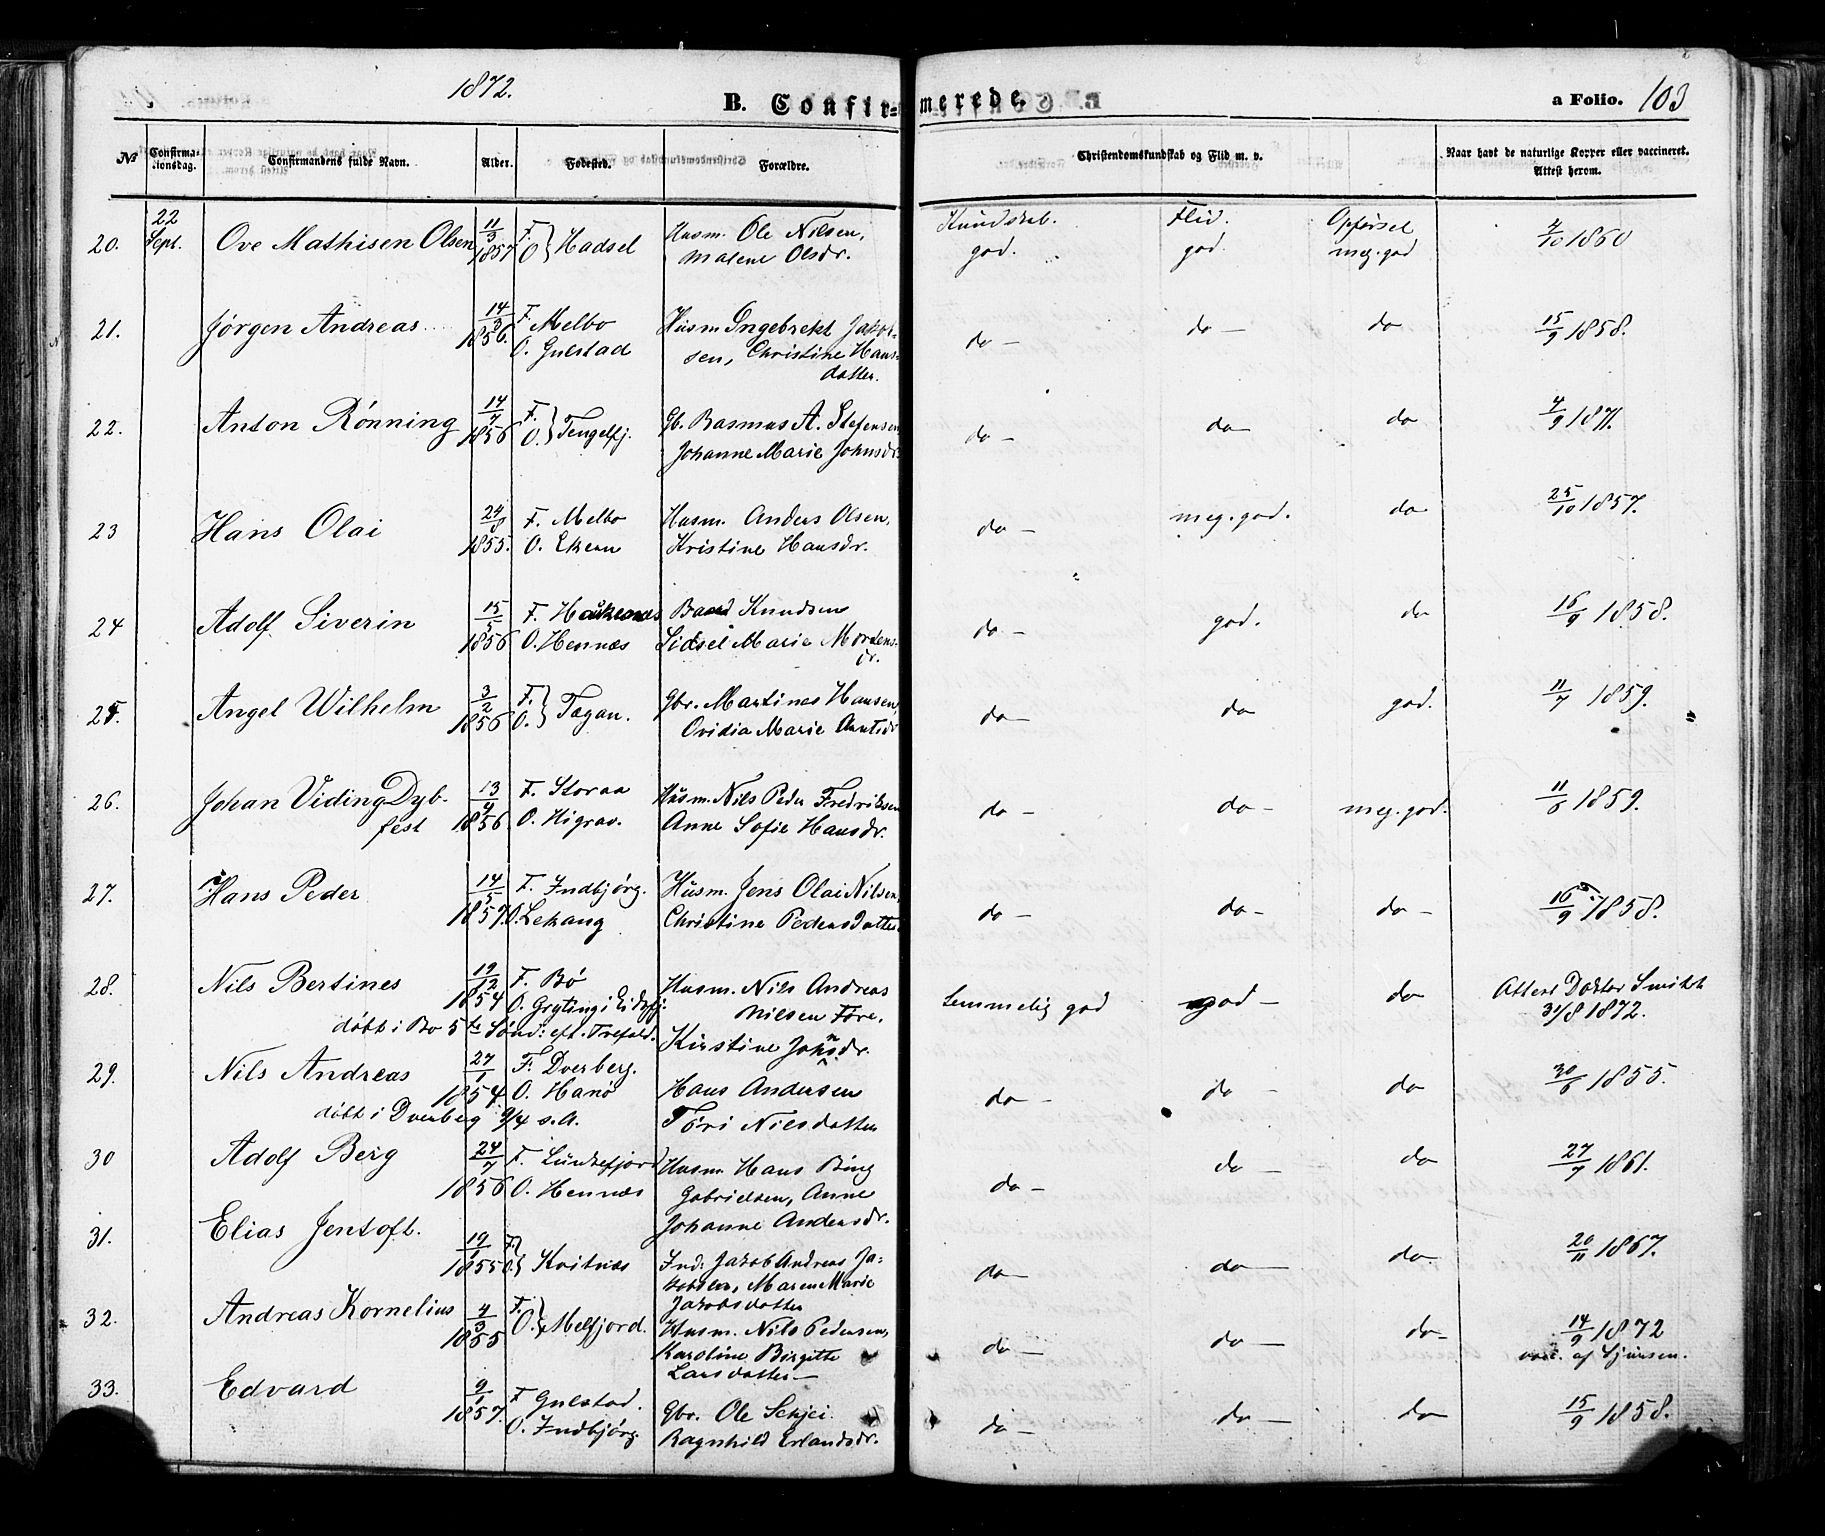 1872.
B. Confir= merede. a Folio. 103
№ Confirma-tionsdag. Confirmandens fulde Navn. Alder. Fødested. Forældre. Christendomskundskab og Flid m. v. Naar havt de naturlige Kopper eller vaccineret. Attest herom.
22 11/3 F. Husm. Ole Nilsen, Kundskab. Flid. Opførsel
20. Sept. Ove Mathisen Olsen 1857 O } Hadsel Malene Olsdr. god. god. meg. god 4/10 1860
21. Jørgen Andreas 14/3 F. Melbo Husm Ingebrekt Jakob- do - do - do 15/9 1858.
1856. O. Gulstad sen, Christine Hans=
datter.
22. Anton Rønning 14/7 F. Gb. Rasmus A. Stefensen do - do - do 4/9 1871.
1856 O. } Tengelfj. Johanne Marie Johnsdr.
23 Hans Olai 24/8 F. Melbo Husm. Anders Olsen, do - meg. god. do 25/10 1857.
1855. O. Ekern Kristine Hansdr.
24 Adolf Siverin 15/5 F. Haukenæs Baard Knudsen do - god. do 16/9 1858.
1856 O. Hennæs Sidsel Marie Mortens-
dr.
25. Angel Wilhelm 3/2 F. Gbr. Martines Hansen, do - do god. 11/7 1859.
1856 O. } Tægan. Ovidia Marie Arntsdr
26. Johan Viding Dyb- 13/4 F. Storaa Husm. Nils Peder Fredriksen do - do - meg. god. 11/6 1859.
fest 1856 O. Higrav. Anne Sofie Hansdr.
27. Hans Peder 14/5 F. Indbjørg. Husm. Jens Olai Nilsen, do - do - do - 16/9 1858.
1857. O. Lekang Christine Pedersdatter
28. Nils Bertines 19/12 F. Bø Husm. Nils Andreas temmelig god god - do Attest Doktor Smith
1854 O. Gryting i Eidsfj. Nilsen Føre, 31/8 1872.
døbt i Bø 5te Sønd: eft. Trefold. Kirstine Johnsdr.
29. Nils Andreas 27/1 F. Dverberg. Hans Andersen do - do - do 30/6 1855.
1854 O. Hanø
døbt i Dverberg 9/4 s.A. Tøri Nilsdatter
30 Adolf Berg 24/7 F. Lundkefjord Husm Hans Bing do - do - do 27/7 1861.
1856 O. Hennæs Gabrielsen, Anne
Johanne Andersdr.
31. Elias Jentoft. 19/1 F. Ind. Jakob Andreas Ja- do - do - do. 20/11 1867.
1855 O. } Kvitnæs kobsen, Maren Marie
Jakobsdatter
32. Andreas Kornelius 4/3 F. Husm. Nils Pedersen, do - do - do - 14/9 1872
1855 O. } Melfjord. Karoline Birgitte vacc. af Sjursen.
Larsdatter -
33. Edvard 9/1 F Gulstad. Gbr. Ole Schjei do - do - do 15/9 1858.
1857. O. Indbjørg. Ragnhild Erlandsdr.